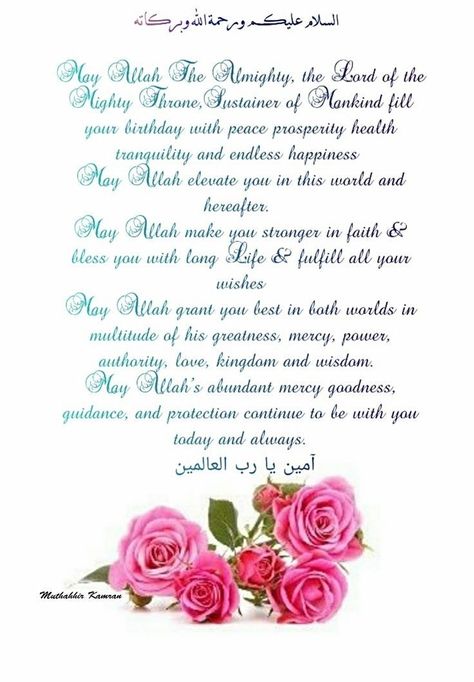 السلام عليكم ورحمة الله وبركاته
May Allah The Almighty, the Lord of the
Mighty Throne,Sustainer of Mankind fill
your birthday with peace prosperity health
tranquility and endless happiness
May Allah elevate you in this world and
hereafter.
May Allah make you stronger in faith &
bless you with long Life & fulfill all your
wishes
May Allah grant you best in both worlds in
multitude of his greatness, mercy, power,
authority, love, kingdom and wisdom.
May Allah's abundant mercy goodness,
guidance, and protection continue to be with you
today and always.
آمين يا رب العالمين
Muthahhir Kamran